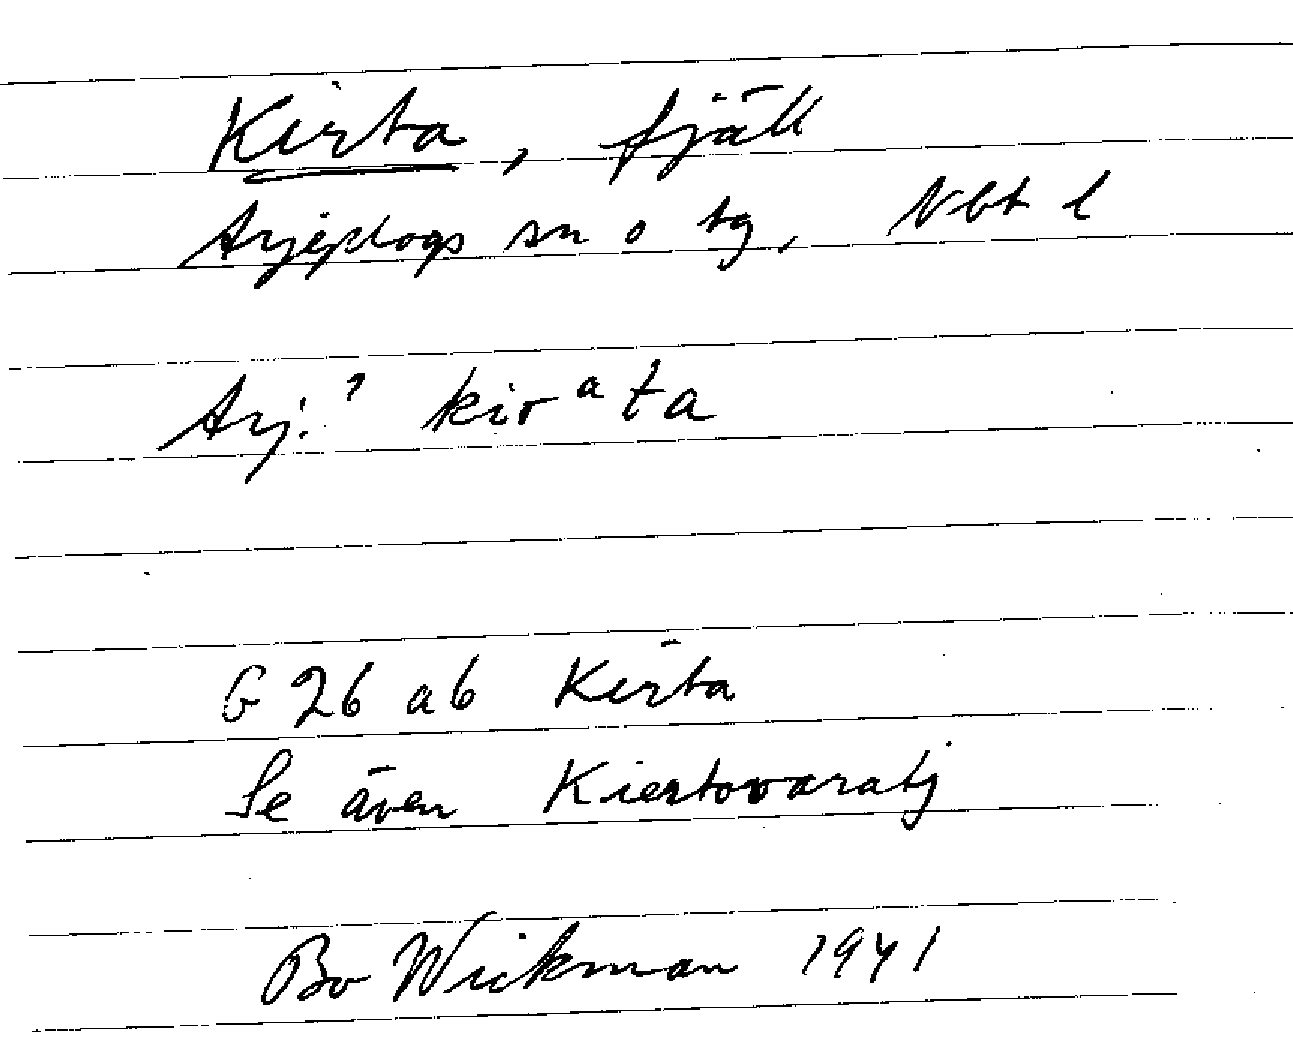 Kirta, fjäll
Arjeplogs sn o tg, Nbt l
Arj.ˀ kirᵃta
G 26 ab Kirta
Se även Kiertovaratj
Bo Wickman 1941